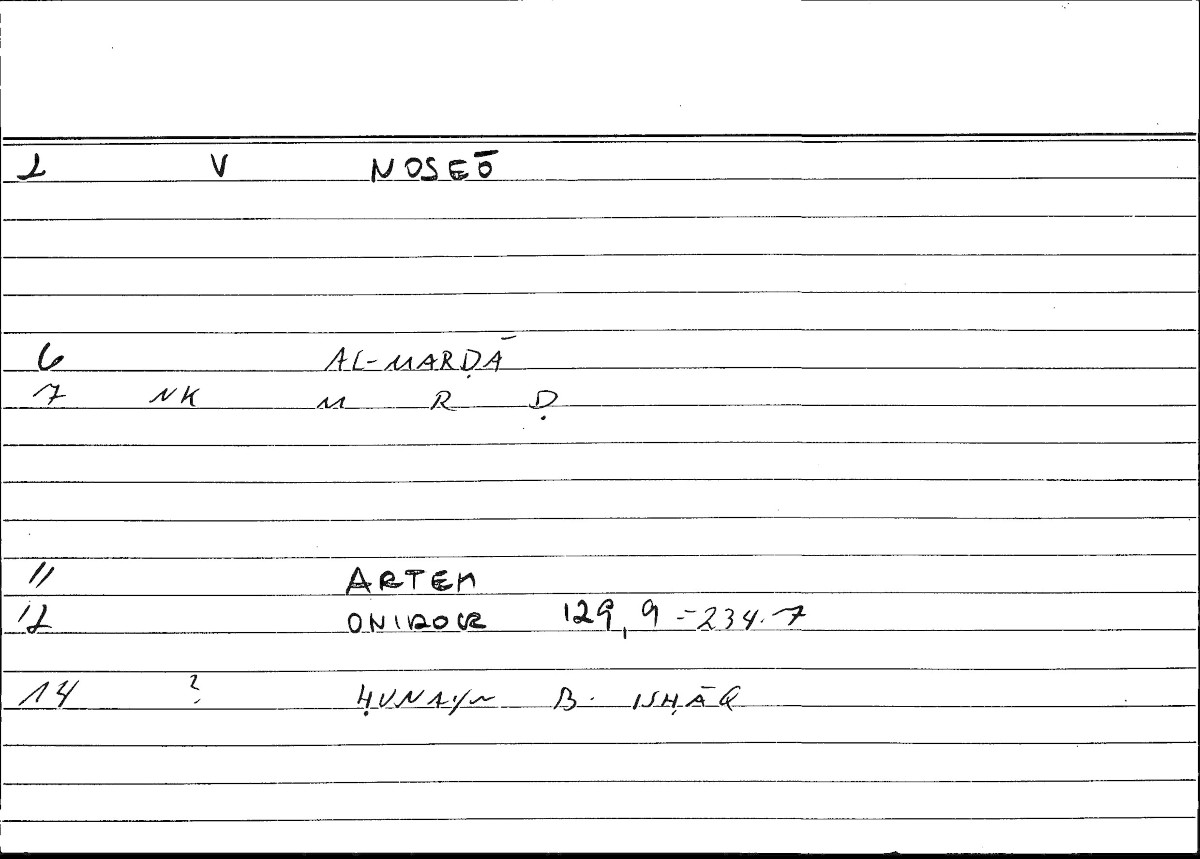 2 V NOSEŌ
6 AL-MARḌĀ
7 NK M R Ḍ
11 ARTEM
12 ONIROCR 129,9 = 234.7
14 ? ḤUNAYN B. ISḤĀQ